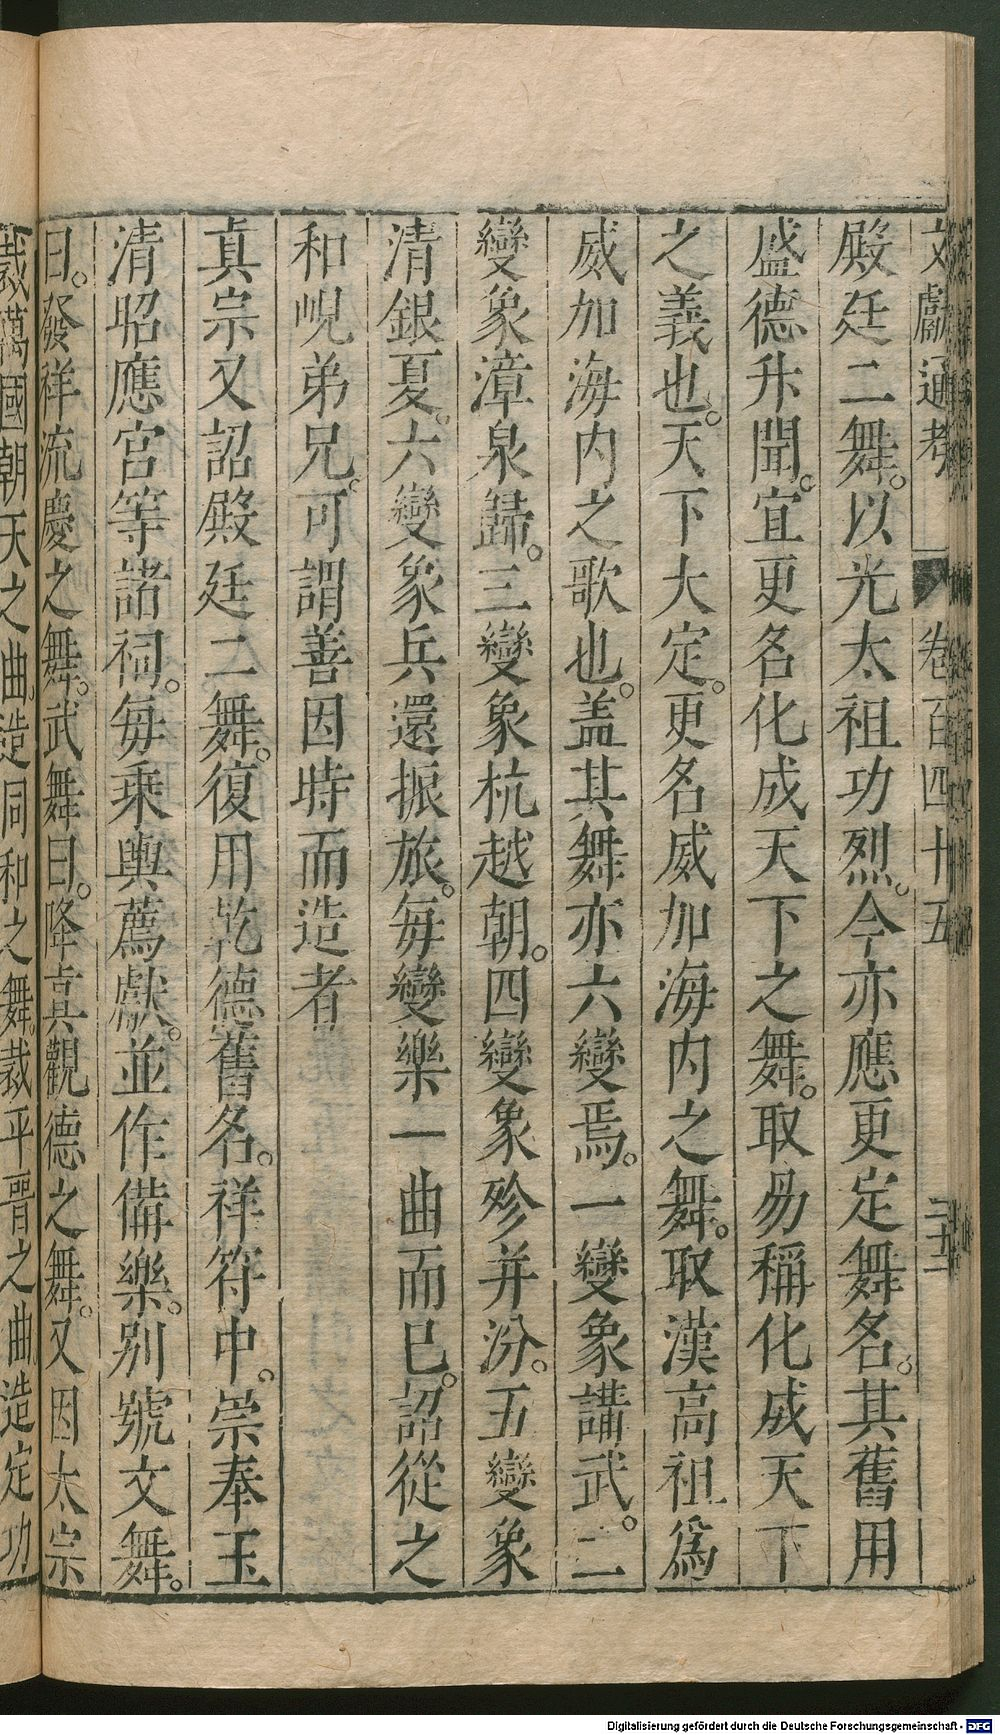 文獻通考 卷百四十五
殿廷二舞。以光太祖功烈。今亦應更定舞名。其舊用
盛德升聞。宜更名化成天下之舞。取易稱化成天下
之義也。天下大定。更名威加海內之舞。取漢高祖爲
威加海內之歌也。盖其舞亦六變焉。一變象講武。二
變象漳泉歸。三變象杭越朝。四變象殄并汾。五變象
清銀夏。六變象兵還振旅。每變樂一曲而已。詔從之
和峴弟兄。可謂善因時而造者
真宗又詔殿廷二舞。復用乾德舊名。祥符中。崇奉玉
清昭應宮等諸祠。每乘輿薦獻。並作備樂。別號文舞。
曰。發祥流慶之舞。武舞曰。降真觀德之舞。又因太宗
裁萬國朝天之曲。造同和之舞。裁平晋之曲。造定功
Digitalisierung gefördert durch die Deutsche Forschungsgemeinschaft - DFG